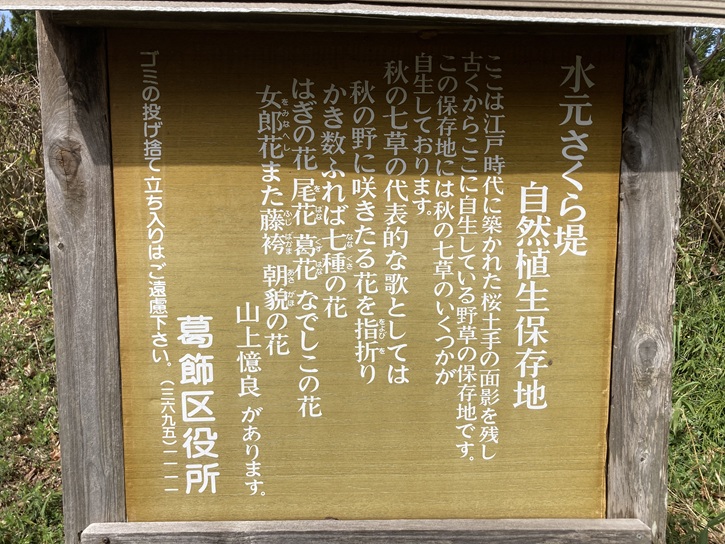 水元さくら堤
自然植生保存地
ここは江戸時代に築かれた桜土手の面影を残し
古くからここに自生している野草の保存地です。
この保存地には秋の七草のいくつかが
自生しております。
秋の七草の代表的な歌としては
秋の野に咲きたる花を指折り
およびを
かき数ふれば七種の花
ななくさ
はぎの花 尾花 葛花 なでしこの花
をばな くずはな
女郎花また藤袴 朝貌の花
をみなへし ふじばかま あさがほ
山上憶良 があります。
葛飾区役所
ゴミの投げ捨て立ち入りはご遠慮下さい。(三六九五)一一一一